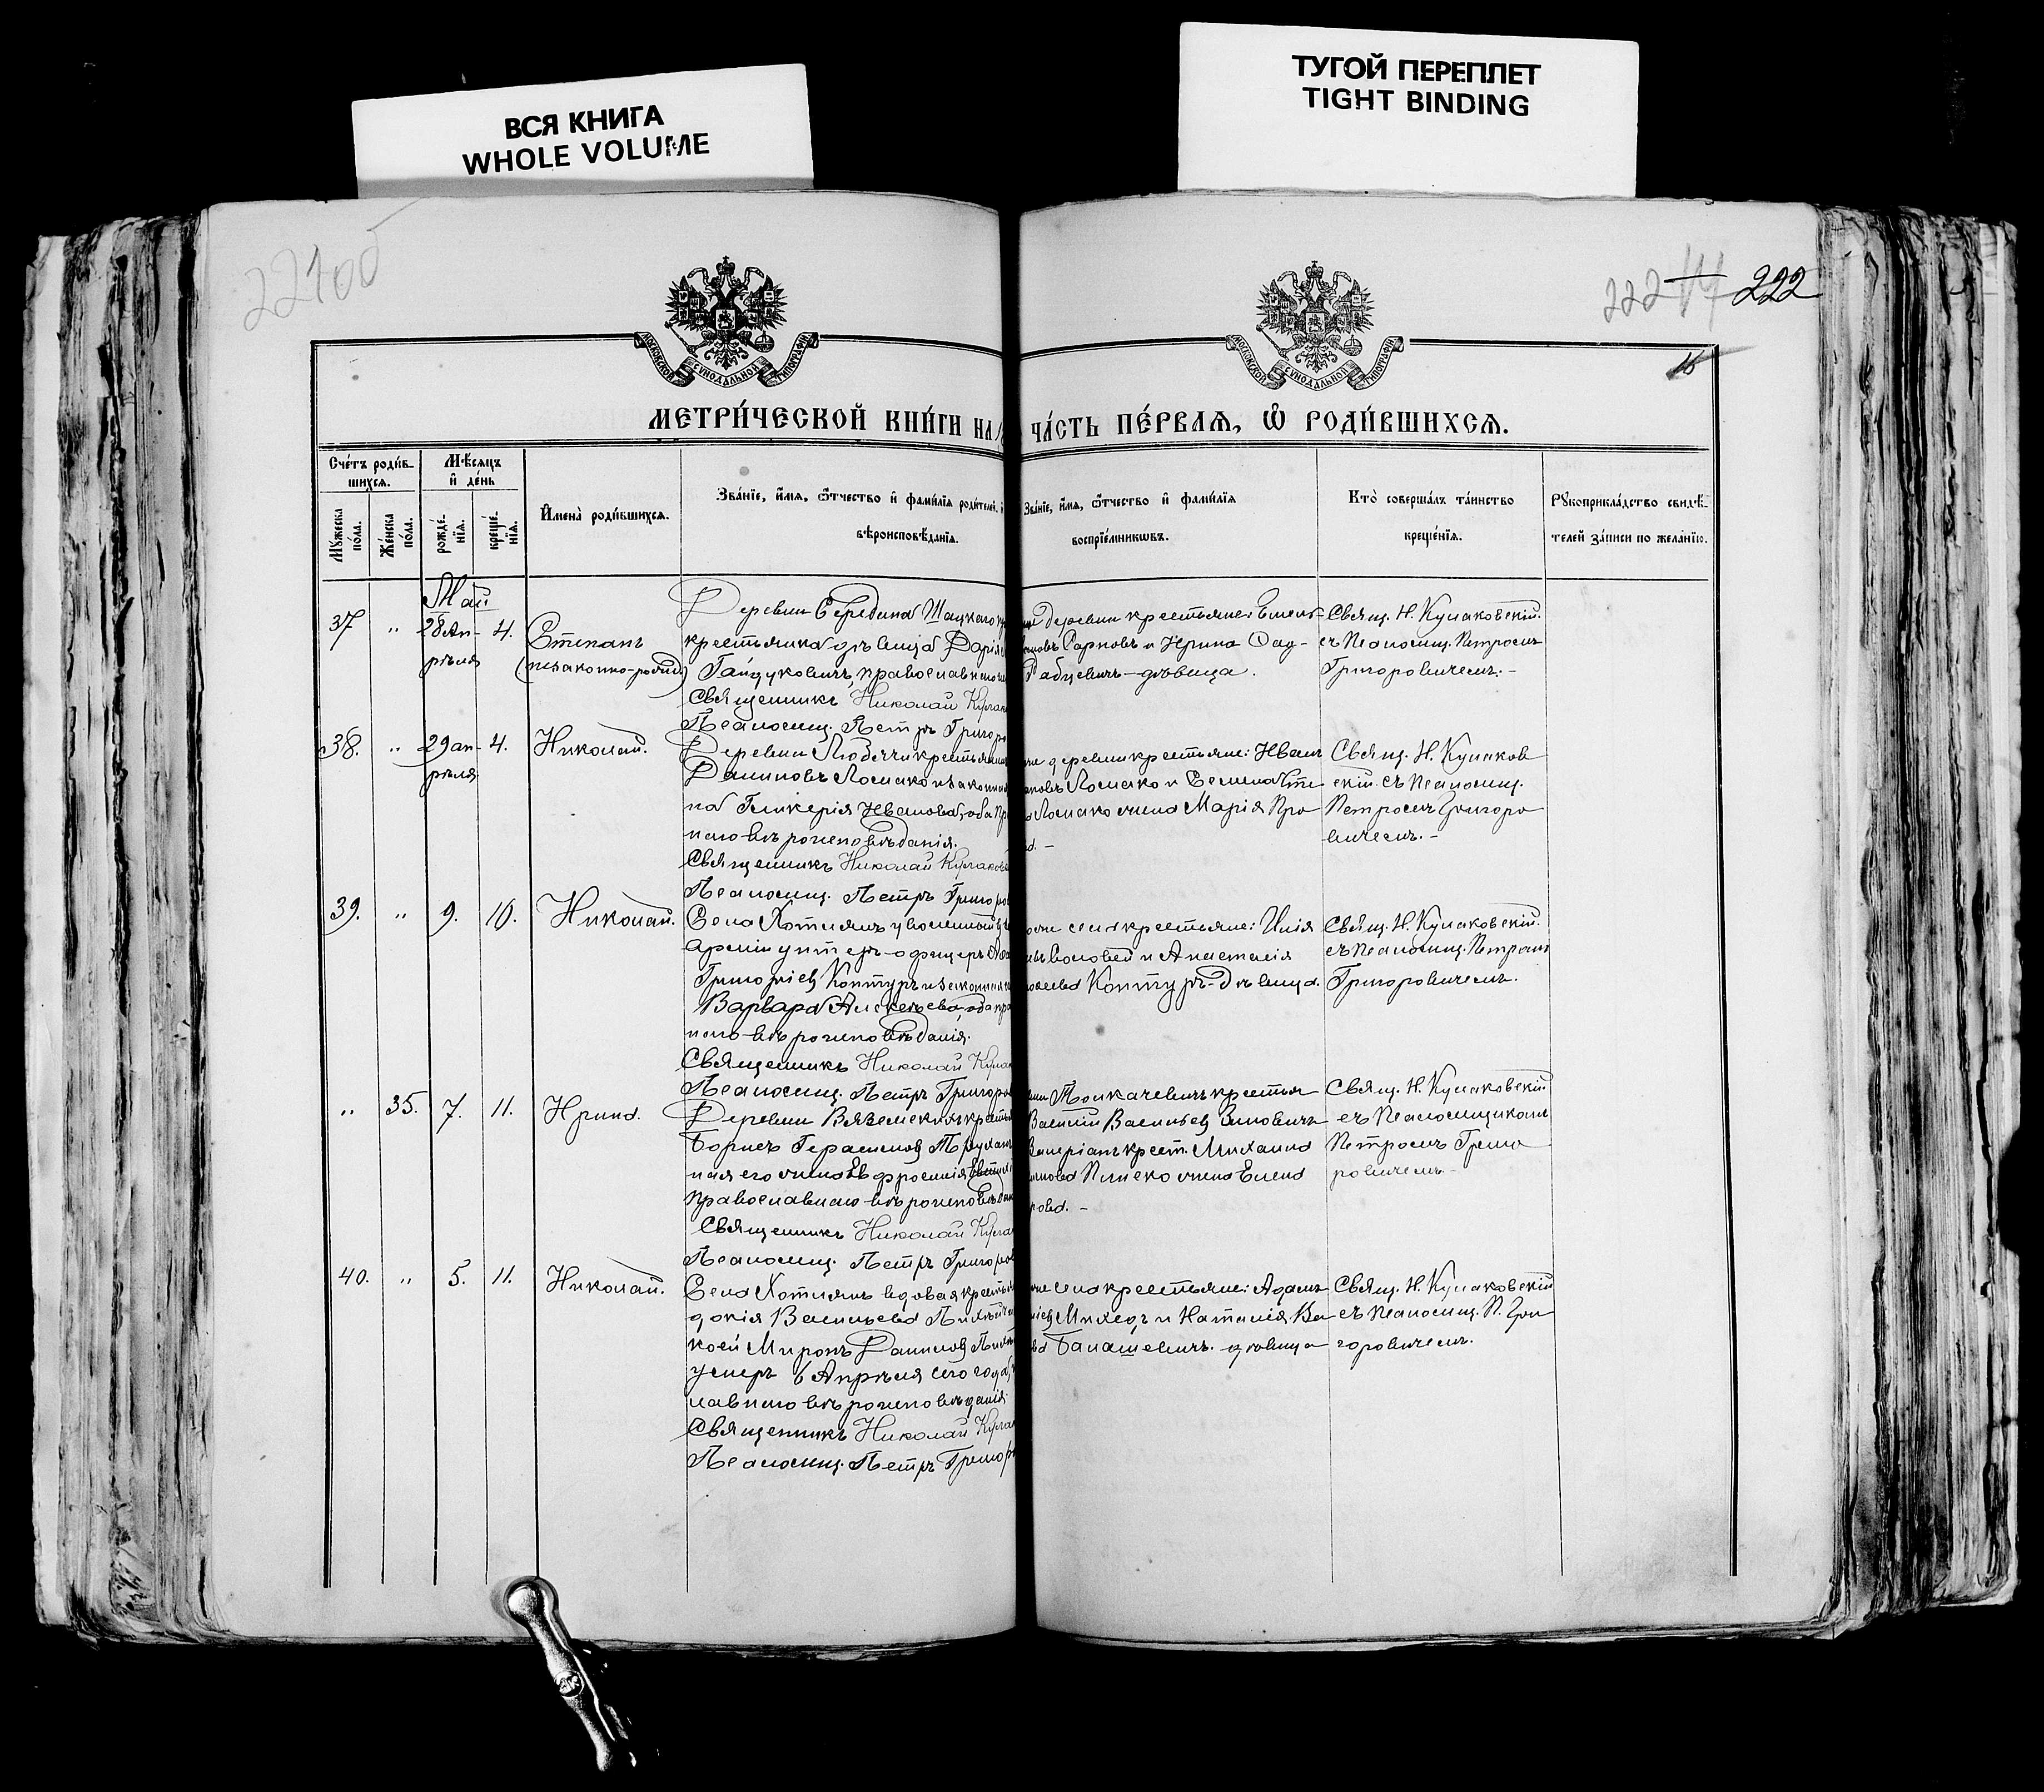 ВСЯ КНИГА
WHOLE VOLUME
ТУГОЙ ПЕРЕПЛЕТ
TIGHT BINDING
221об
222
222
16
МОСКОВСКОЙ СУНОДАЛЬНОЙ ТИПОГРАФІИ
МОСКОВСКОЙ СУНОДАЛЬНОЙ ТИПОГРАФІИ
МЕТРИ́ЧЕСКОЙ КНИ́ГИ НА
ЧА́СТЬ ПЕ́РВАѦ, Ѡ҆ РОДИ́ВШИХСѦ.
Сче́тъ роди́в-
шихсѧ.
Мꙋжеска по́ла.
Же́нска по́ла.
Мѣ́сѧцъ
и҆ де́нь
рожде́-
нїѧ.
креще́-
нїѧ.
И҆мена̀ роди́вшихсѧ.
Зва́нїе, и҆́мѧ, ѻ҆́тчество и҆ фами́лїѧ роди́телей,
вѣроисповѣ́данїѧ.
Зва́нїе, и҆́мѧ, ѻ҆́тчество и҆ фами́лїѧ
воспрїе́мникѡвъ.
Кто̀ соверша́лъ та́инство
креще́нїѧ.
Рꙋкоприкла́дство свидѣ́-
телей за́писи по жела́нїю.
Май
37 " 28 Ап- 4. Степанъ
рѣля (незаконно-рожд.)
Деревни Середина Шацкаго
крестьянка дѣвица Дарія
Гайдуковичъ, православнаго
Священникъ Николай Кулак
Псаломщ. Петръ Григоро
деревни крестьяне: Емель-
Карповъ и Ирина Сад-
Рабцевичъ - дѣвица.
Свящ. Н. Кулаковскій.
съ Псаломщ. Петромъ
Григоровичемъ. -
38. " 29 ап- 4. Николай.
рѣля
Деревни Любячки крестьянинъ
Даниловъ Ломако и законная
на Гликерія Иванова, оба пр
наго вѣроисповѣданія.
Священникъ Николай Кулаков
Псаломщ. Петръ Григоров
деревни крестьяне: Иванъ
Ломако и Семена Сте
Ломако жена Марія Про
Свящ. Н. Кулаков
скій съ Псаломщ.
Петромъ Григоро
вичемъ. -
39. " 9. 10. Николай.
Села Хотлянъ уволенный въ
арміи унтеръ-офицеръ
Григоріев Контуръ и законная
Варвара Алексѣева, оба пра
наго вѣроисповѣданія.
Священникъ Николай Кулак
Псаломщ. Петръ Григоро
села крестьяне: Илія
Соловей и Анастасія
Контуръ - дѣвица.
Свящ. Н. Кулаковскій.
съ Псаломщ. Петромъ
Григоровичемъ.
" 35. 7. 11. Ирина.
Деревни Вяземскихъ крестья
Борисъ Герасимов Трухан
ная его жена Евфросинія
православнаго вѣроисповѣдан
Священникъ Николай Кулак
Псаломщ. Петръ Григоров
крестья
Василій Васильев Зиновичъ
крест. Михаила
жена Елена
Свящ. Н. Кулаковскій
съ Псаломщикомъ
Петромъ Григо
ровичемъ -
40. " 5. 11. Николай.
Села Хотлянъ вдовая крестья
докія Васильева
Миронъ Данилов
умеръ 6 Апрѣля сего года,
лавнаго вѣроисповѣданія.
Священникъ Николай Кулак
Псаломщ. Петръ Григор
села крестьяне: Адамъ
Михедъ и Наталія Ва
Балашевичъ. дѣвица
Свящ. Н. Кулаковскій
съ Псаломщ. П. Гри
горовичемъ.